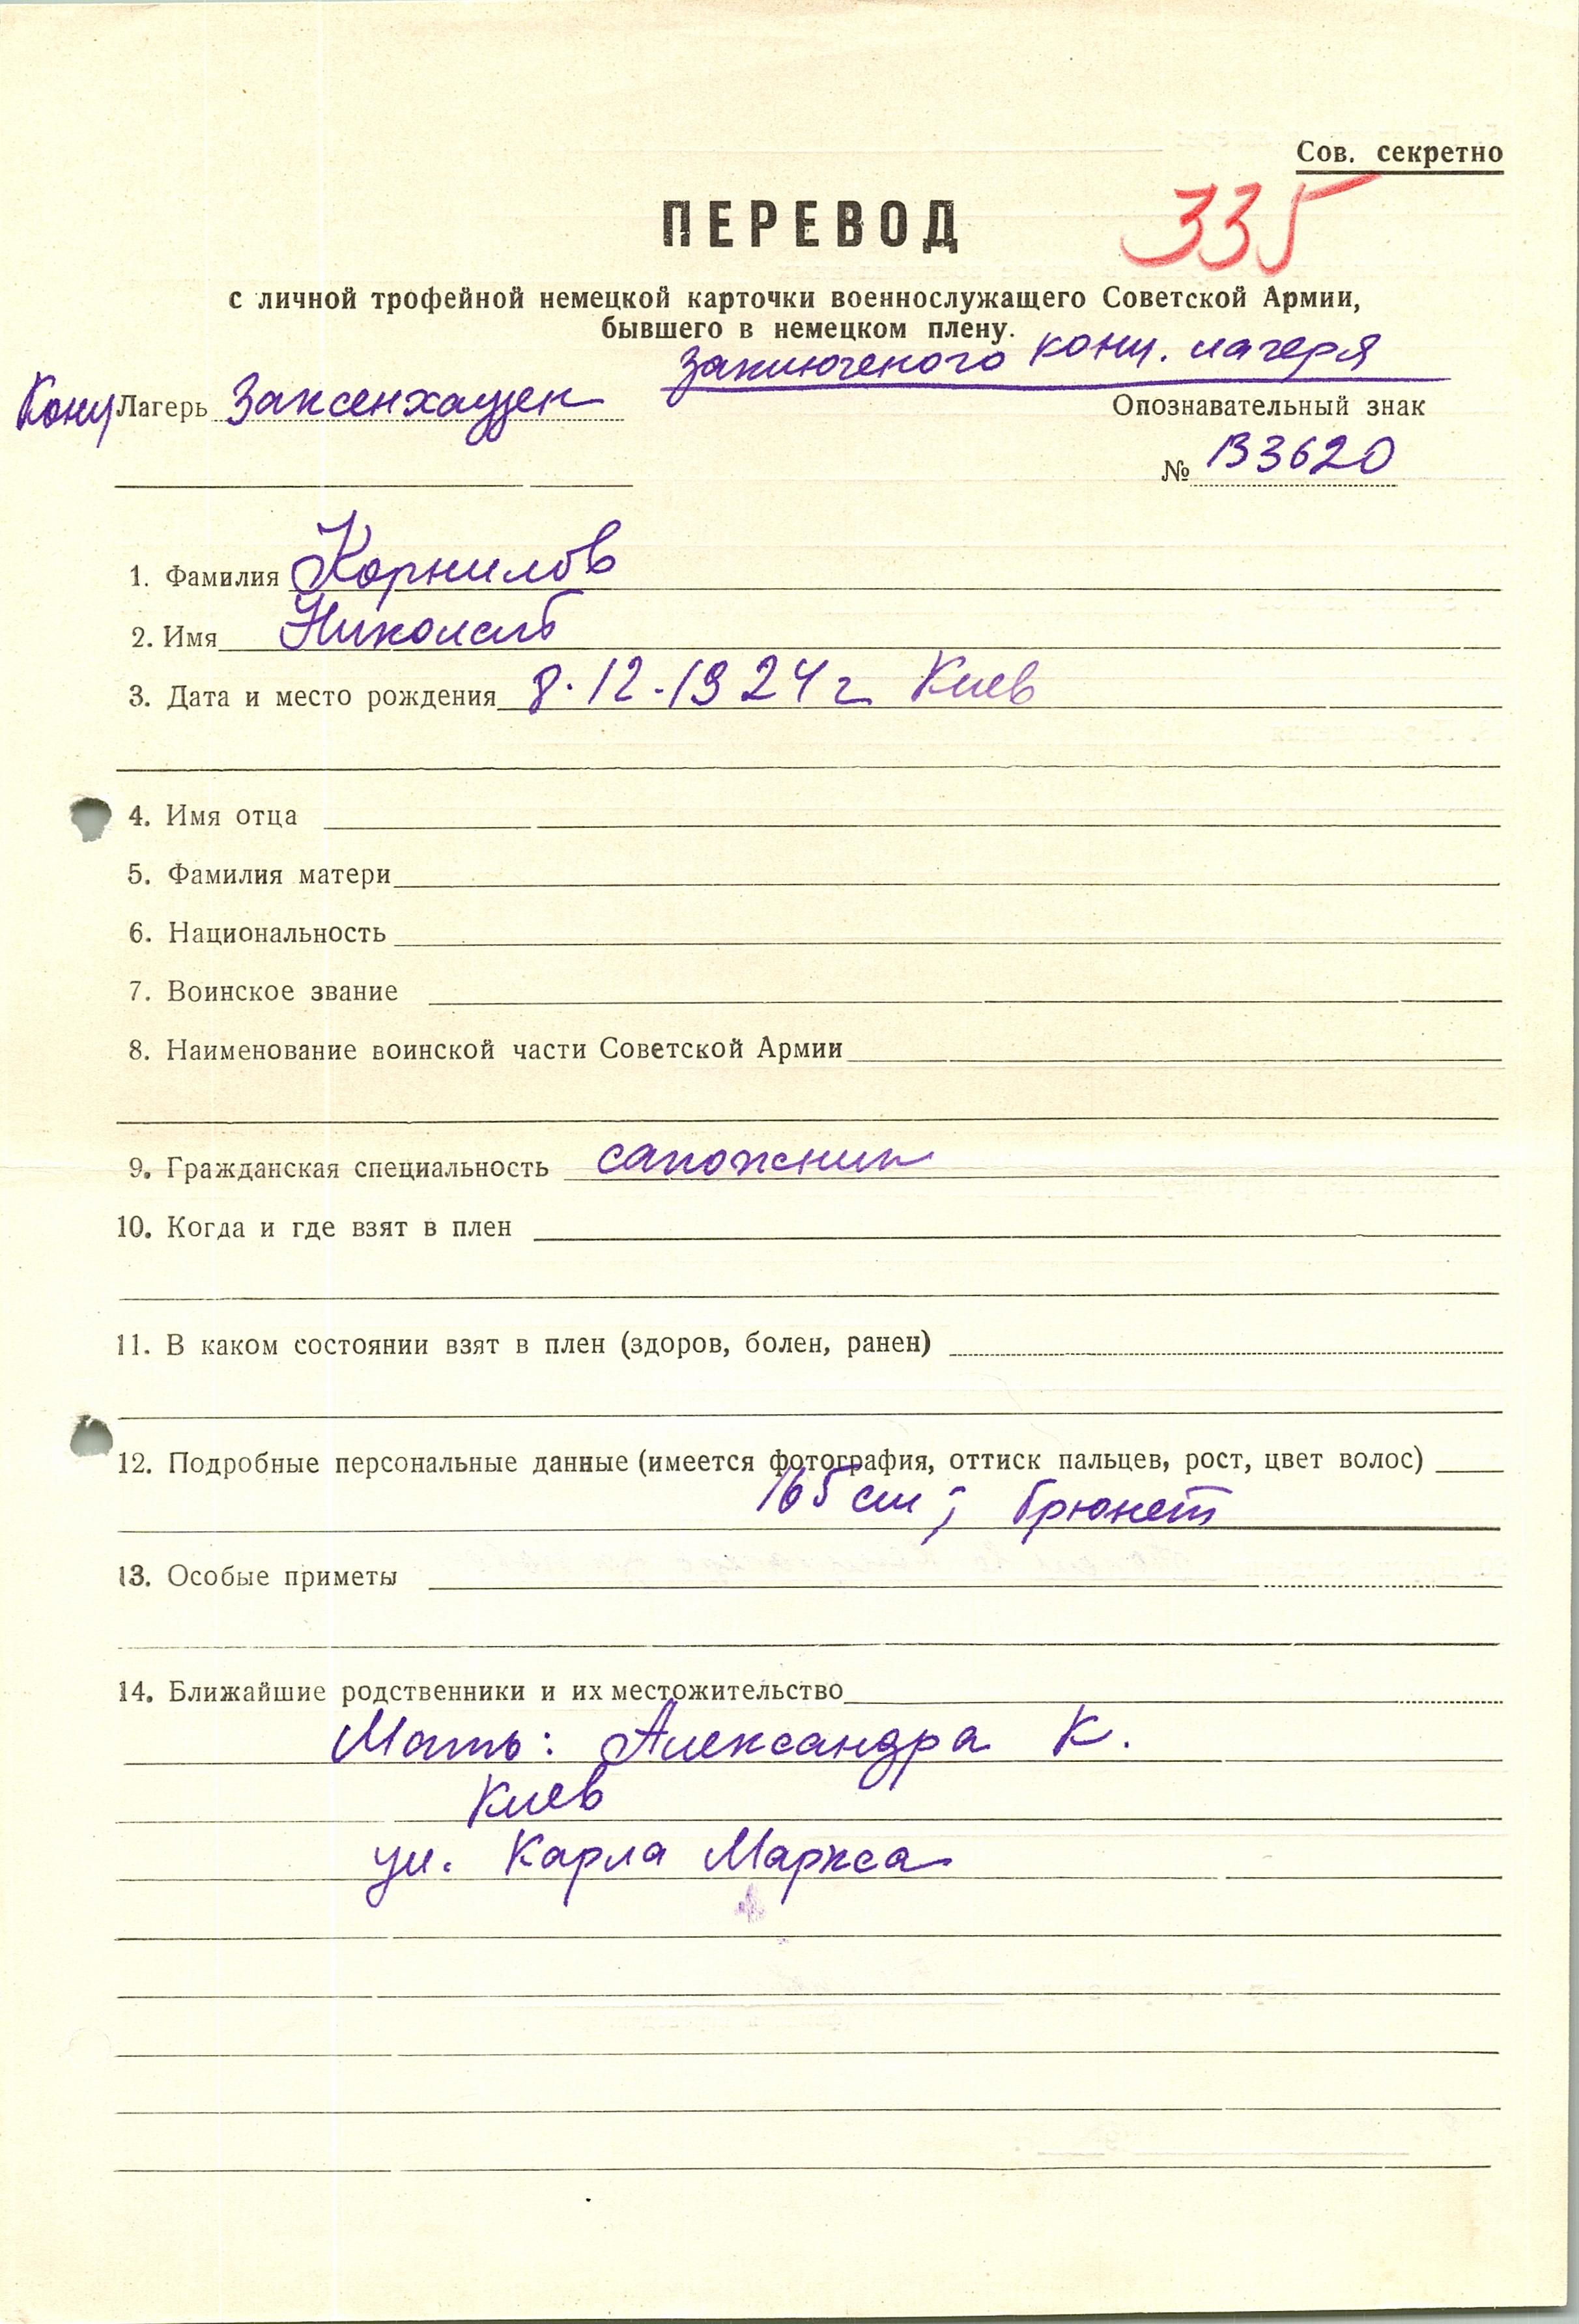 Сов. секретно
335
ПЕРЕВОД
с личной трофейной немецкой карточки военнослужащего Советской Армии,
бывшего в немецком плену.
заключеного конц. лагеря
Конц Лагерь Заксенхаузен
Опознавательный знак
№ В3620
1. Фамилия Корнилов
2. Имя Николай
3. Дата и место рождения 8.12.1924 г Киев
4. Имя отца
5. Фамилия матери
6. Национальность
7. Воинское звание
8. Наименование воинской части Советской Армии
9. Гражданская специальность сапожник
10. Когда и где взят в плен
11. В каком состоянии взят в плен (здоров, болен, ранен)
12. Подробные персональные данные (имеется фотография, оттиск пальцев, рост, цвет волос)
165 см; брюнет
13. Особые приметы
14. Ближайшие родственники и их местожительство
Мать: Александра К.
Киев
ул. Карла Маркса